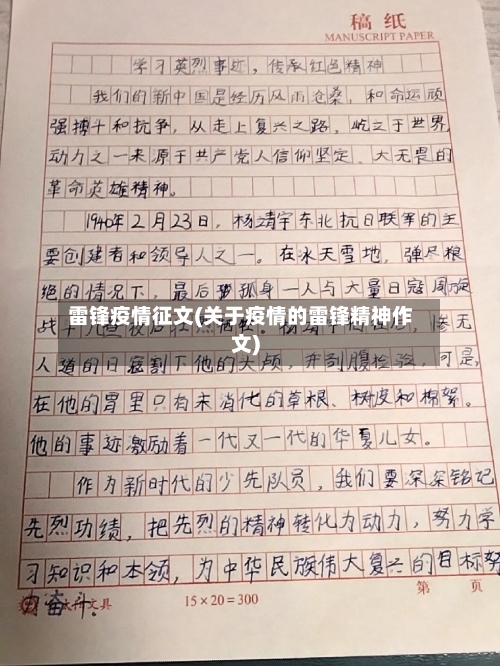 稿 纸
MANUSCRIPT PAPER
学习英烈事迹，传承红色精神
我们的新中国是经历风雨沧桑，和命运顽
强搏斗和抗争，从走上复兴之路，屹立于世界
动力之一来源于共产党人信仰坚定、大无畏的
革命英雄精神。
1940年2月23日，杨靖宇东北抗日联军的主
要创建者和领导人之一。在冰天雪地，弹尽粮
绝的情况下，最后孤身一人与大量日寇周旋
战斗几昼夜后壮烈牺牲。
雷锋疫情征文(关于疫情的雷锋精神作
文)
惨无
人道的日寇割下他的头颅，并剖腹检验，可是，
在他的胃里只有未消化的草根、树皮和棉絮。
他的事迹激励着一代又一代的华夏儿女。
作为新时代的少先队员，我们要深深铭记
先烈功绩，把先烈的精神转化为动力，努力学
习知识和本领，为中华民族伟大复兴的目标努
力奋斗。
文具
15×20=300
第 页